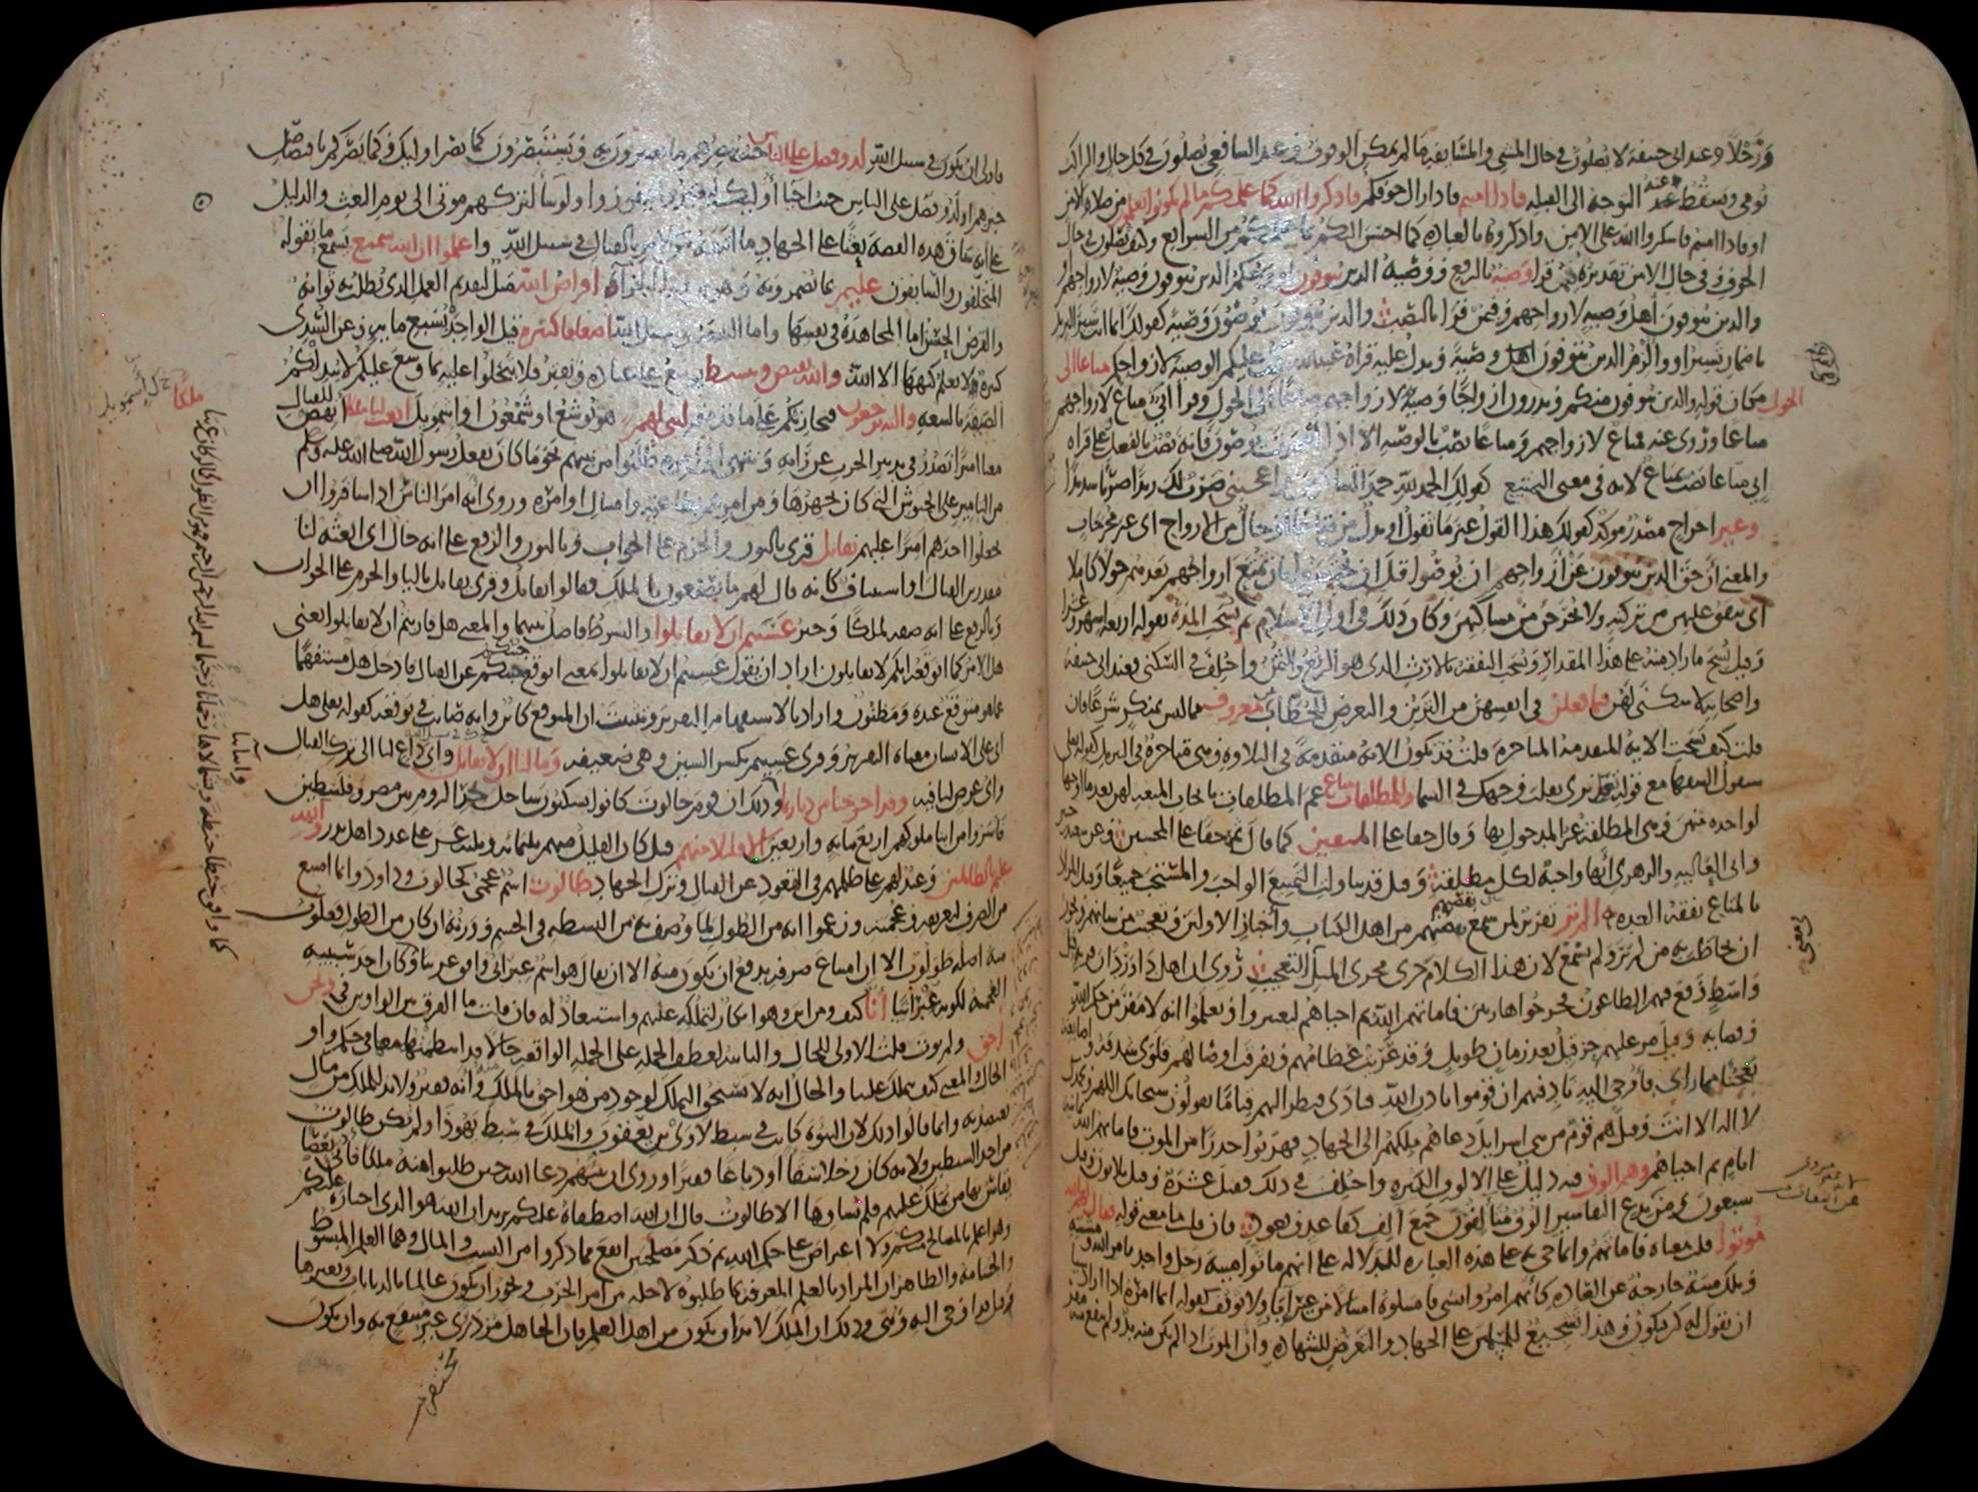 ورجلا وعند أبي حنيفة لا يصلون في حال المشي والمسايفة ما لم يمكن الوقوف وعند الشافعي يصلون في كل حال والراكب
يومي ويسقط عنه التوجه إلى القبلة فاذا امنتم فاذا زال خوفكم فاذكروا الله كما علمكم ما لم تكونوا تعلمون من صلاة الأمن
او فاذا امنتم فاشكروا الله على الأمن واذكروه بالعبادة كما احسن اليكم بما علمكم من الشرايع وكيف تصلون في حال
الخوف وفي حال الامن تقديره فيمن قرا وصية بالرفع ووصية الذين يتوفون او وحكم الذين يتوفون وصية لازواجهم
والذين يتوفون اهل وصية لازواجهم وفيمن قرا بالنصب والذين يتوفون يوصون وصية كقولك انما انت سير البريد
باضمار تسير او والزم الذين يتوفون اهل وصية ويدل عليه قراة عبدالله كتب عليكم الوصية لازواجكم متاعا الى
الحول مكان قوله والذين يتوفون منكم ويذرون ازواجا وصية لازواجهم متاعا الى الحول وقرا ابي متاع لازواجهم
متاعا وروي عنه فمتاع لازواجهم ومتاعا نصب بالوصية الا اذا اضمرت يوصون فانه نصب بالفعل وعلى قراة
ابي متاعا نصب بمتاع لانه في معنى التمتيع كقولك الحمد لله حمد الشاكرين واعجبني ضرب لك زيدا ضربا شديدا
وغير اخراج مصدر موكد كقولك هذا القول غير ما تقول او بدل من متاعا او حال من الازواج اي غير مخرجات
والمعنى ان حق الذين يتوفون عن ازواجهم ان يوصوا قبل ان يحتضروا بان تمتع ازواجهم بعدهم حولا كاملا
اي ينفق عليهن من تركته ولا يخرجن من مساكنهن وكان ذلك في اول الاسلام ثم نسخت المدة بقوله اربعة اشهر وعشرا
وقيل نسخ ما زاد منه على هذا المقدار ونسخت النفقة بالارث الذي هو الربع والثمن واختلف في السكنى فعند ابي حنيفة
واصحابه لا سكنى لهن فيما فعلن في انفسهن من التزين والتعرض للخطاب من معروف مما ليس بمنكر شرعا فان
قلت كيف نسخت الاية المتقدمة المتاخرة قلت قد تكون الاية متقدمة في التلاوة وهي متاخرة في التنزيل كقوله تعالى
سيقول السفها مع قوله قد نرى تقلب وجهك في السما وللمطلقات متاع عم المطلقات بايجاب المتعة لهن بعد ما اوجبها
لواحدة منهن وهي المطلقة غير المدخول بها وقال حقا على المتقين كما قال ثم حقا على المحسنين وعن سعيد بن جبير
وابي العالية والزهري انها واجبة لكل مطلقة وقيل قد تناولت التمتيع الواجب والمستحب جميعا وقيل المراد
بالمتاع نفقة العدة الم تر تقرير لمن سمع بقصتهم من اهل الكتاب واخبار الاولين وتعجيب من شانهم ويجوز
ان يخاطب به من لم ير ولم يسمع لان هذا الكلام جرى مجرى المثل في التعجيب روي ان اهل داوردان قرية قبل
واسط وقع فيهم الطاعون فخرجوا هاربين فاماتهم الله ثم احياهم ليعتبروا ويعلموا انه لا مفر من حكم الله
وقضايه وقيل مر عليهم حزقيل بعد زمان طويل وقد عريت عظامهم وتفرقت اوصالهم فلوى شدقه واصابعه
تعجبا مما راى فاوحي اليه ناد فيهم ان قوموا باذن الله فنادى فنظر اليهم قياما يقولون سبحانك اللهم وبحمدك
لا اله الا انت وقيل هم قوم من بني اسرايل دعاهم ملكهم الى الجهاد فهربوا حذرا من الموت فاماتهم الله ثمانية
ايام ثم احياهم وهم الوف فيه دليل على الالوف الكثيرة واختلف في ذلك فقيل عشرة وقيل ثلاثون وقيل
سبعون ومن بدع التفاسير الوف متالفون جمع الف كقاعد وقعود فان قلت ما معنى قوله فقال لهم الله
موتوا قلت معناه فاماتهم وانما جي به على هذه العبارة للدلالة على انهم ماتوا ميتة رجل واحد بامر الله ومشيته
وتلك ميتة خارجة عن العادة كانهم امروا بشي فامتثلوه امتثالا من غير اباء ولا توقف كقوله انما امره اذا اراد شيا
ان يقول له كن فيكون وهذا تشجيع للمسلمين على الجهاد والتعرض للشهادة وان الموت اذا لم يكن منه بد ولم ينفع منه مفر
فاولى ان يكون في سبيل الله لذو فضل على الناس حيث يبصرهم ما يعتبرون به ويستبصرون كما بصر اوليك وكما بصركم باقتصاص
خبرهم او لذو فضل على الناس حيث احيا اوليك ليعتبروا فيفوزوا ولو شا لتركهم موتى الى يوم البعث والدليل
على انه ساق هذه القصة بعثا على الجهاد ما اتبعه من الامر بالقتال في سبيل الله واعلموا ان الله سميع يسمع ما يقوله
المتخلفون والسابقون عليم بما يضمرونه وهو من ورا الجزا اقراض الله مثل لتقديم العمل الذي يطلب به ثوابه
والقرض الحسن اما المجاهدة في نفسها واما النفقة في سبيل الله اضعافا كثيرة قيل الواحد بسبع ماية وعن السدي
كثيرة لا يعلم كنهها الا الله والله يقبض ويبسط يوسع على عباده ويقتر فلا تبخلوا عليه بما وسع عليكم لا يبدلكم
الضيقة بالسعة واليه ترجعون فيجازيكم على ما قدمتم لنبي لهم هو يوشع او شمعون او اشمويل ابعث لنا ملكا انهض للقتال
معنا اميرا نصدر في تدبير الحرب عن رايه وننتهي الى امره طلبوا من نبيهم نحو ما كان يفعل رسول الله صلى الله عليه وسلم
من التامير على الجيوش التي كان يجهزها ومن امرهم بطاعته وامتثال اوامره وروي انه امر الناس اذا سافروا ان
يجعلوا احدهم اميرا عليهم نقاتل قري بالنون والجزم على الجواب وبالنون والرفع على انه حال اي ابعثه لنا
مقدرين القتال او استيناف كانه قال لهم ما تصنعون بالملك فقالوا نقاتل وقري يقاتل بالياء والجزم على الجواب
وبالرفع على انه صفة لملكا وخبر عسيتم ان لا تقاتلوا والشرط فاصل بينهما والمعنى هل قاربتم ان لا تقاتلوا يعني
هل الامر كما اتوقعه انكم لا تقاتلون اراد ان يقول عسيتم ان لا تقاتلوا بمعنى اتوقع جبنكم عن القتال فادخل هل مستفهما
عما هو متوقع عنده ومظنون واراد بالاستفهام التقرير وتثبيت ان المتوقع كاين وانه صايب في توقعه كقوله تعالى هل
اتى على الانسان معناه التقرير وقري عسيتم بكسر السين وهي ضعيفة وما لنا ان لا نقاتل واي داع لنا الى ترك القتال
واي غرض لنا فيه وقد اخرجنا من ديارنا وذلك ان قوم جالوت كانوا يسكنون ساحل بحر الروم بين مصر وفلسطين
فاسروا من ابنا ملوكهم اربع ماية واربعين الا قليلا منهم قيل كان القليل منهم ثلثماية وثلثة عشر على عدد اهل بدر والله
عليم بالظالمين وعيد لهم على ظلمهم في القعود عن القتال وترك الجهاد طالوت اسم عجمي كجالوت وداود وانما امتنع
من الصرف لتعريفه وعجمته وزعموا انه من الطول لما وصف به من البسطة في الجسم ووزنه ان كان من الطول فعلوت
منه اصله طولوت الا ان امتناع صرفه يدفع ان يكون منه الا ان يقال هو اسم عبراني وافق عربيا وكان احد سببيه
العجمة لكونه عبرانيا انى كيف ومن اين وهو انكار لتملكه عليهم واستبعاد له فان قلت ما الفرق بين الواوين في ونحن
احق ولم يوت قلت الاولى للحال والثانية لعطف الجملة على الجملة الواقعة حالا قد انتظمتهما معا في حكم واو
الحال والمعنى كيف يتملك علينا والحال انه لا يستحق التملك لوجود من هو احق بالملك وانه فقير ولا بد للملك من مال
يعتضد به وانما قالوا ذلك لان النبوة كانت في سبط لاوي بن يعقوب والملك في سبط يهوذا ولم يكن طالوت
من احد السبطين ولانه كان رجلا سقا او دباغا فقيرا وروي ان نبيهم دعا الله حين طلبوا منه ملكا فاتى بعصا
يقاس بها من يملك عليهم فلم يساوها الا طالوت قال ان الله اصطفاه عليكم يريد ان الله هو الذي اختاره عليكم
وهو اعلم بالمصالح منكم ولا اعتراض على حكم الله ثم ذكر مصلحتين انفع مما ذكروا من النسب والمال وهما العلم المبسوط
والجسامة والظاهر ان المراد بالعلم المعرفة بما طلبوه لاجله من امر الحرب ويجوز ان يكون عالما بالديانات وبغيرها
وقيل قد اوحي اليه ونبي وذلك ان الملك لا بد ان يكون من اهل العلم فان الجاهل مزدرى غير منتفع به وان يكون